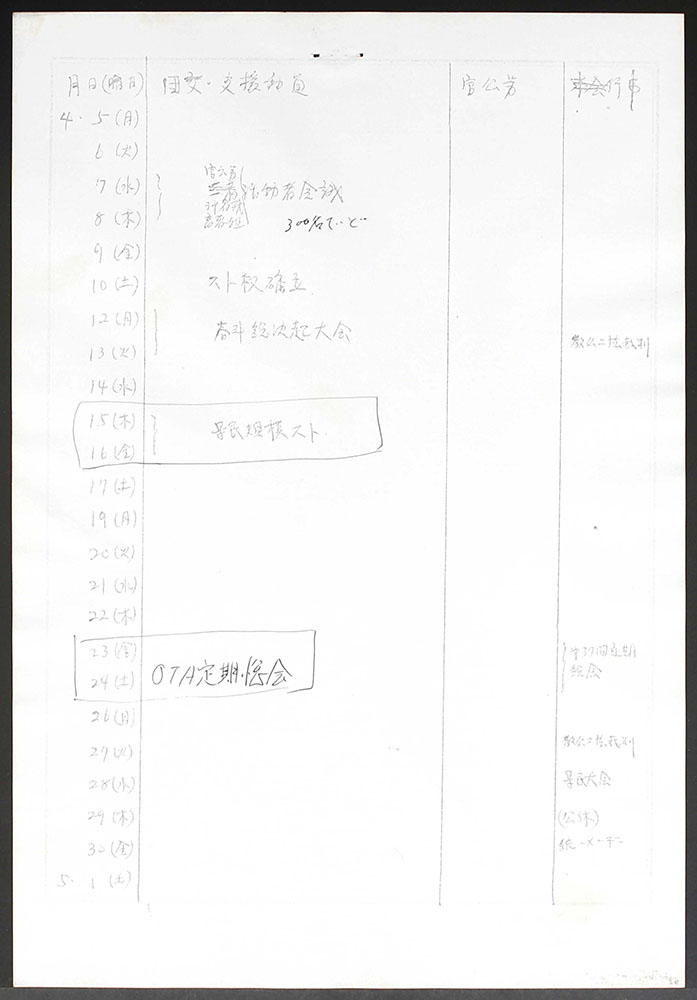 月日(曜日) 団交・支援動員 官公労 行事
4・5(月)
6(火)
7(水) 官公労 活動者会議
8(木) 300名ていど
9(金)
10(土) スト权確立
12(月) 春斗総決起大会
13(火) 教公二法裁判
14(水)
15(木) 県民規模スト
16(金)
17(土)
19(月)
20(火)
21(水)
22(木)
23(金) 才37回定期
24(土) OTA定期総会 総会
26(月)
27(火) 教公二法裁判
28(水) 県民大会
29(木) (公休)
30(金) 統一メーデー
5・1(土)